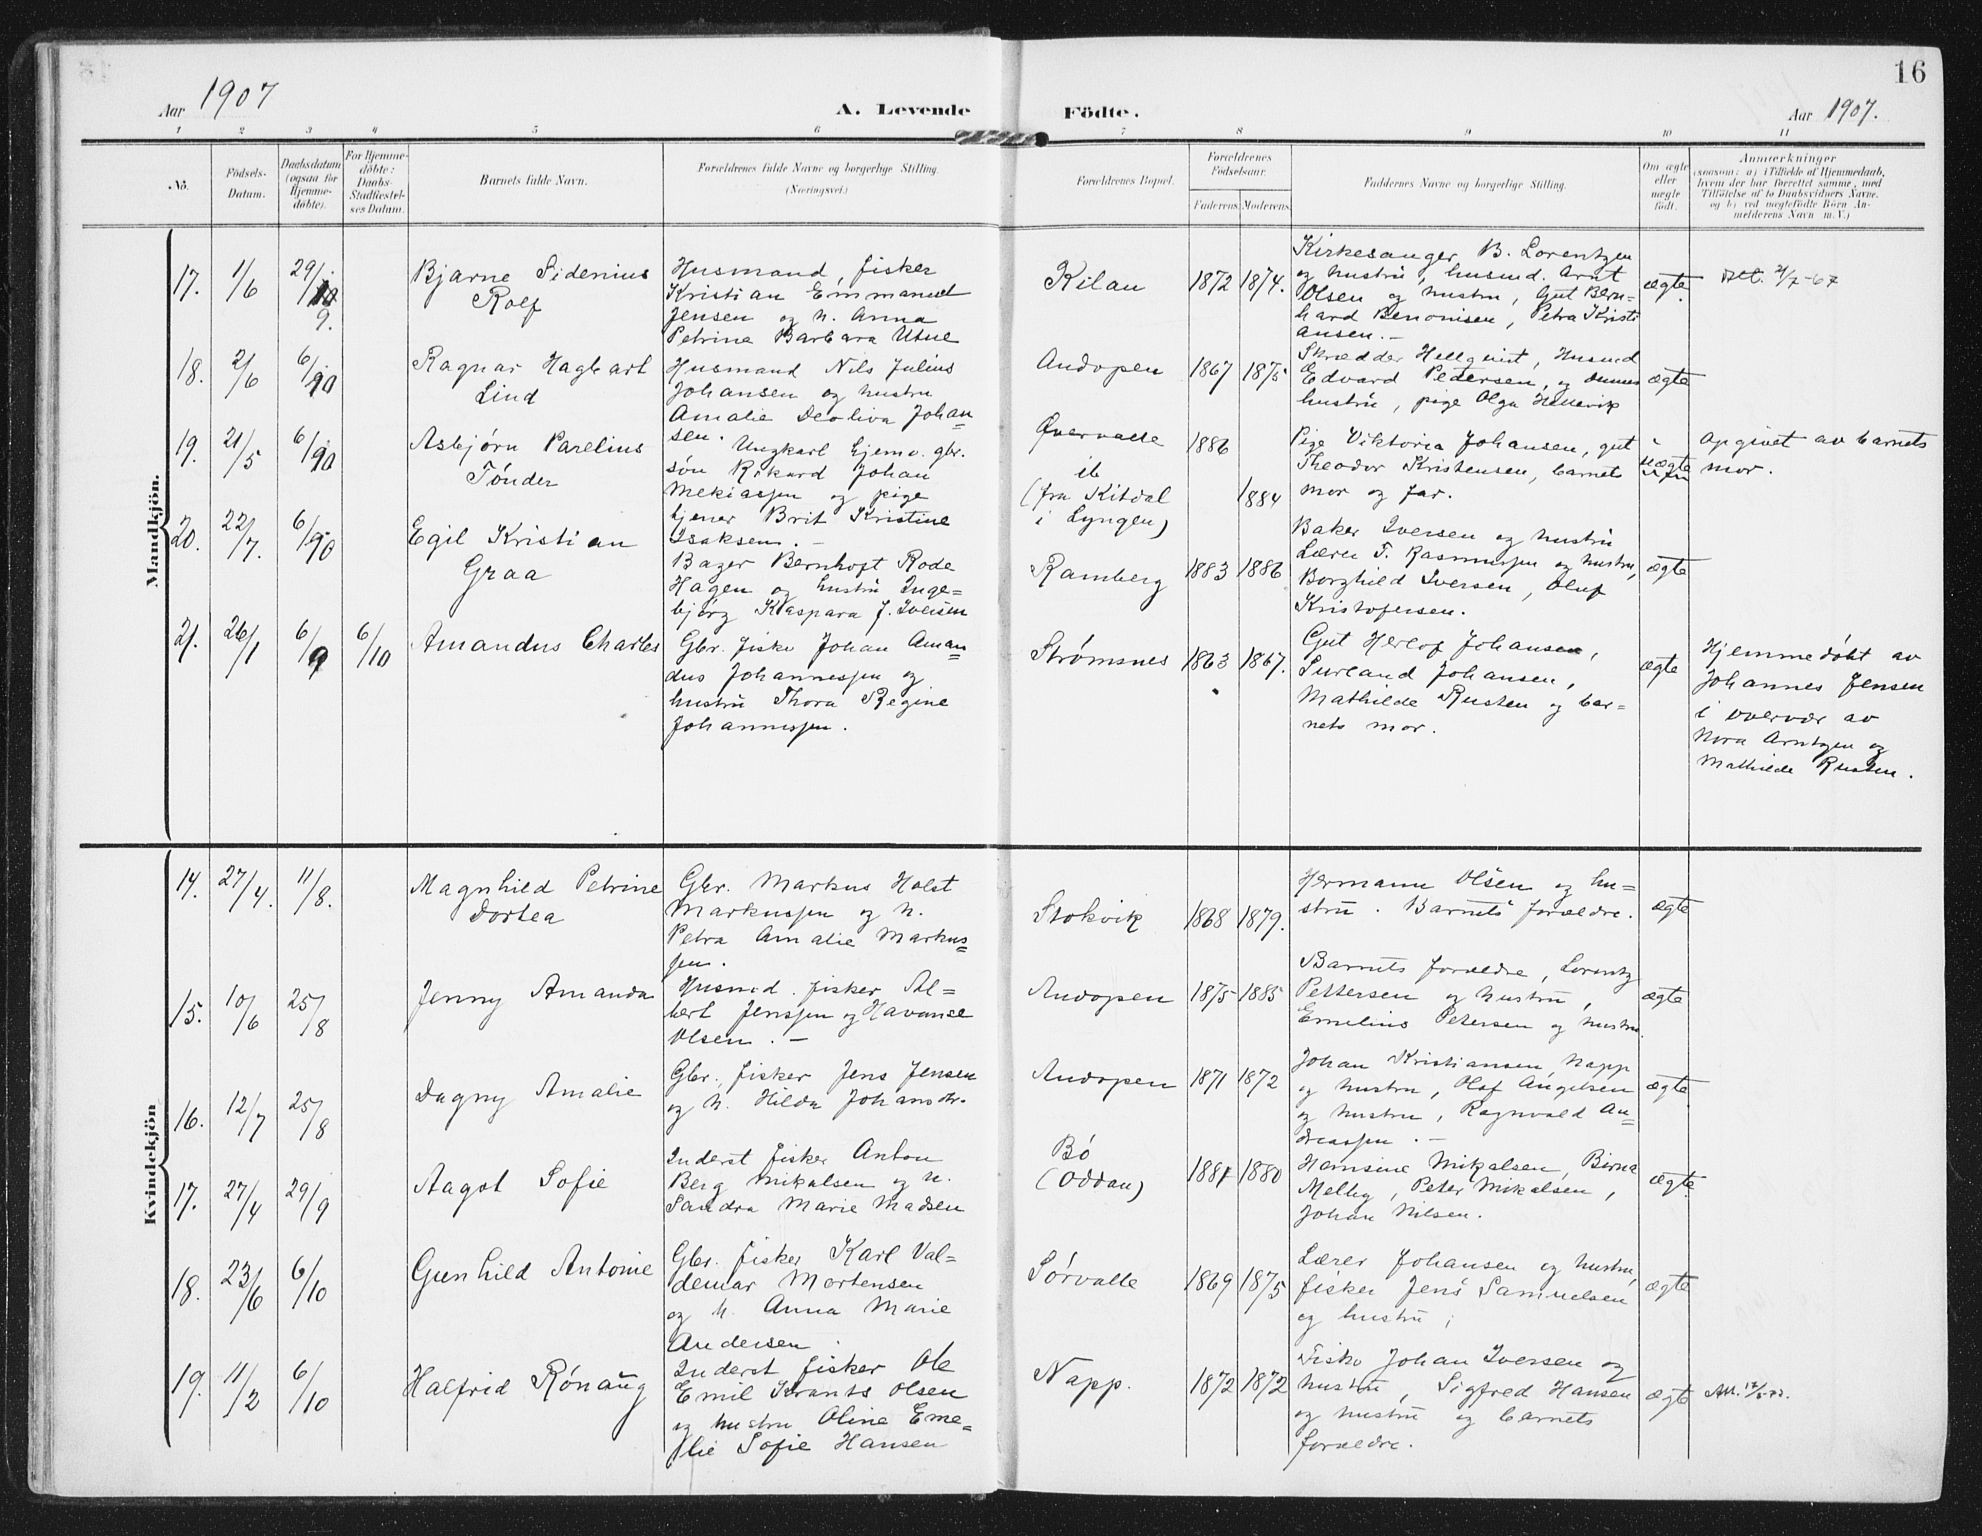 16
Aar 1907 A. Levende Födte. Aar 1907.
1 2 3 4 5 6 7 8 9 10 11
No. Födsels-Datum. Daabsdatum (ogsaa for Hjemme-döbte). For Hjemme-döbte: Daabs-Stadfæstel-ses Datum. Barnets fulde Navn. Forældrenes fulde Navne og borgerlige Stilling. (Næringsvei.) Forældrenes Bopæl. Forældrenes Födselsaar. Faderens Moderens Faddernes Navne og borgerlige Stilling. Om ægte eller uægte födt. Anmærkninger (saasom: a) i Tilfælde af Hjemmedaab, hvem der har forrettet samme, med Tilföielse af to Daabsvidners Navne. og b) ved uægtefödte Börn An-melderens Navn m. V.)
Mandkjön.
17. 1/6 29/9. Bjarne Sidenius
Rolf
Husmand, fisker
Kristian Emmanuel
Jensen og h. Anna
Petrine Barbara Utne
Kilan 1872 1874.
Kirkesanger B. Lorentzen
og hustru, husmd. Arnt
Olsen og hustru, Gut Bern=
hard Benonisen, Petra Kristi
ansen.-
ægte.
18. 2/6 6/10 Ragnar Hagbart
Lind
Husmand Nils Julius
Johansen og hustru
Amalie Deoliva Johan=
sen.
Andopen 1867 1875
Skrædder Hellquist, Husmd
Edvard Pedersen, og dennes
hustru, pige Olga Hellevik
ægte
19. 21/5 6/10 Asbjørn Parelius
Tønder
Ungkarl Ejemd. gbr.
søn Rikard Johan
Mekiassen og pige
tjener Brit Kristine
Isaksen. -
ib
(fra Kitdal
i Lyngen)
1886 1884
Pige Viktoria Johansen, gut
Theodor Kristensen, barnets
mor og far.
uægte
Opgivet av barnets
mor.
20. 22/7. 6/10 Egil Kristian
Graa
Bager Bernhoft Rode
Hagen og hustru Inge=
bjørg Kaspara J. Iversen
Ramberg 1883 1886
Baker Iversen og hustru
Lærer T. Rasmussen og hustru,
Borghild Iversen, Oluf
Kristofersen.
ægte
21. 26/1 6/9 6/10 Amandus Charles
Gbr. fisker Johan Aman=
dus Johannessen og
hustru Thora Regine
Johannessen.
Strømsnes 1863 1867.
Gut Herlof Johansen,
Surland Johansen,
Mathilde Rusten og bar=
nets mor.
ægte
Hjemmedøbt av
Johannes Jensen
i overvær av
Nora Arntzen og
Mathilde Rusten.
Kvindekjön
14. 27/4. 11/8. Magnhild Petrine
Dortea
Gbr. Markus Holst
Markussen og h.
Petra Amalie Markus=
sen.
Stokvik 1868 1879.
Hermann Olsen og hu=
stru. Barnets forældre.
ægte
15. 10/6 25/8 Jenny Amanda
Husmd. fisker Al=
bert Jenssen og Havanse
Olsen. -
Andopen 1875 1885
Barnets forældre, Lorentz
Pettersen og hustru,
Emelius Petersen og hustru
ægte
16. 12/7 25/8 Dagny Amalie
Gbr. fisker Jens Jensen
og h. Hilda Johansdtr.
Andopen 1871 1872
Johan Kristiansen, Napp
og hustru, Olaf Angelsen
og hustru, Ragnvald An=
dreassen. -
ægte
17. 27/4 29/9 Aagot Sofie
Inderst fisker Anton
Berg Mikalsen og h.
Sandra Marie Madsen
Bö
(Oddan)
1881 1880
Hansine Mikalsen, Birna
Melby, Peter Mikalsen,
Johan Nilsen.
ægte
18. 23/6 6/10 Gunhild Antonie
Gbr. fisker Karl Val=
demar Mortensen
og h. Anna Marie
Andersen.
Sörvalle 1869 1875
Lærer Johansen og hustru,
fisker Jens Samuelsen
og hustru,
ægte
19. 11/2 6/10 Halfrid Rónaug
Inderst fisker Ole
Emil Krants Olsen
og hustru Oline Eme=
lie Sofie Hansen
Napp. 1872 1872
Fisker Johan Iversen og
hustru, Sigfred Hansen
og hustru og barnets
forældre.
ægte